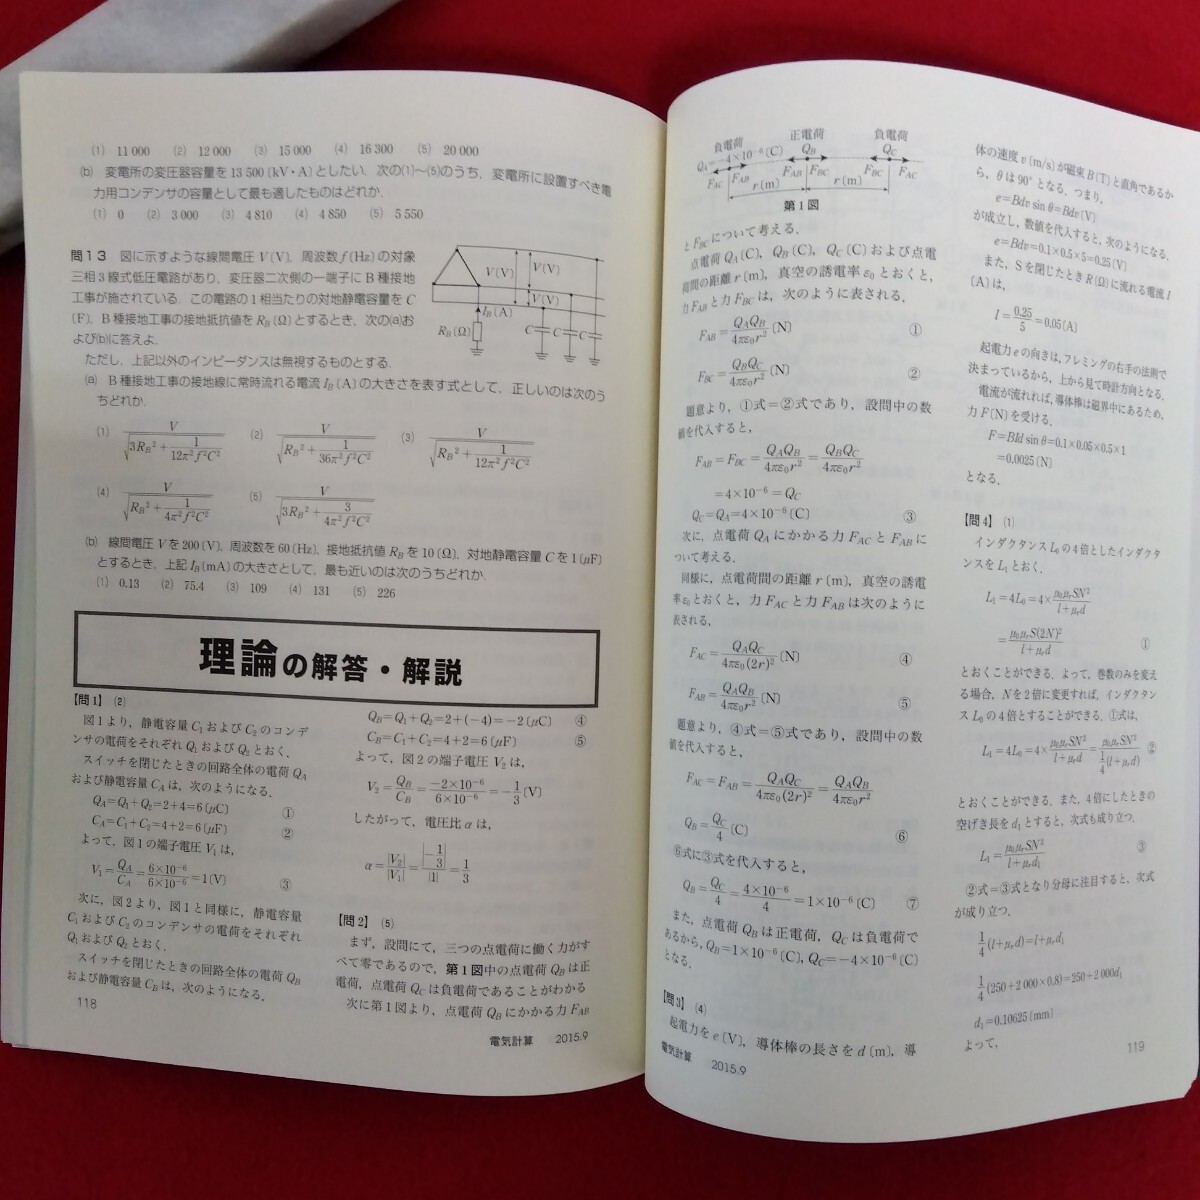 (1) 11 000 (2) 12 000 (3) 15 000 (4) 16 300 (5) 20 000
(b) 変電所の変圧器容量を 13 500〔kV・A〕としたい．次の(1)～(5)のうち，変電所に設置すべき電
力用コンデンサの容量として最も適したものはどれか．
(1) 0 (2) 3 000 (3) 4 810 (4) 4 850 (5) 5 550
問13 図に示すような線間電圧 V〔V〕，周波数 f〔Hz〕の対象
三相3線式低圧電路があり，変圧器二次側の一端子にB種接地
工事が施されている．この電路の1相当たりの対地静電容量を C
〔F〕，B種接地工事の接地抵抗値を R_B〔Ω〕とするとき，次の(a)お
よび(b)に答えよ．
ただし，上記以外のインピーダンスは無視するものとする．
V〔V〕 V〔V〕
V〔V〕
I_B〔A〕
R_B〔Ω〕 C C C
(a) B種接地工事の接地線に常時流れる電流 I_B〔A〕の大きさを表す式として，正しいのは次のう
ちどれか．
(1) V/√(3R_B²+1/(12π²f²C²)) (2) V/√(R_B²+1/(36π²f²C²)) (3) V/√(R_B²+1/(12π²f²C²))
(4) V/√(R_B²+1/(4π²f²C²)) (5) V/√(3R_B²+3/(4π²f²C²))
(b) 線間電圧 V を 200〔V〕，周波数を 60〔Hz〕，接地抵抗値 R_B を 10〔Ω〕，対地静電容量 C を 1〔μF〕
とするとき，上記 I_B〔mA〕の大きさとして，最も近いのは次のうちどれか．
(1) 0.13 (2) 75.4 (3) 109 (4) 131 (5) 226
理論の解答・解説
【問1】 (2)
図1より，静電容量 C₁ および C₂ のコンデ
ンサの電荷をそれぞれ Q₁ および Q₂ とおく．
スイッチを閉じたときの回路全体の電荷 Q_A
および静電容量 C_A は，次のようになる．
Q_A=Q₁+Q₂=2+4=6〔μC〕 ①
C_A=C₁+C₂=4+2=6〔μF〕 ②
よって，図1の端子電圧 V₁ は，
V₁=Q_A/C_A=6×10⁻⁶/6×10⁻⁶=1〔V〕 ③
次に，図2より，図1と同様に，静電容量
C₁ および C₂ のコンデンサの電荷をそれぞれ
Q₁ および Q₂ とおく．
スイッチを閉じたときの回路全体の電荷 Q_B
および静電容量 C_B は，次のようになる．
118
Q_B=Q₁+Q₂=2+(-4)=-2〔μC〕 ④
C_B=C₁+C₂=4+2=6〔μF〕 ⑤
よって，図2の端子電圧 V₂ は，
V₂=Q_B/C_B=-2×10⁻⁶/6×10⁻⁶=-1/3〔V〕
したがって，電圧比 α は，
α=|V₂|/|V₁|=|-1/3|/|1|=1/3
【問2】 (5)
まず，設問にて，三つの点電荷に働く力がす
べて零であるので，第1図中の点電荷 Q_B は正
電荷，点電荷 Q_C は負電荷であることがわかる．
次に第1図より，点電荷 Q_B にかかる力 F_AB
電気計算 2015.9
負電荷 正電荷 負電荷
Q_A=-4×10⁻⁶〔C〕 Q_B Q_C
F_AC F_AB F_AB F_BC F_BC F_AC
r〔m〕 r〔m〕
第1図
と F_BC について考える．
点電荷 Q_A〔C〕，Q_B〔C〕，Q_C〔C〕および点電
荷間の距離 r〔m〕，真空の誘電率 ε₀ とおくと，
力 F_AB と力 F_BC は，次のように表される．
F_AB=Q_AQ_B/4πε₀r²〔N〕 ①
F_BC=Q_BQ_C/4πε₀r²〔N〕 ②
題意より，①式=②式であり，設問中の数
値を代入すると，
F_AB=F_BC=Q_AQ_B/4πε₀r²=Q_BQ_C/4πε₀r²
=4×10⁻⁶=Q_C
Q_C=Q_A=4×10⁻⁶〔C〕 ③
次に，点電荷 Q_A にかかる力 F_AC と F_AB に
ついて考える．
同様に，点電荷間の距離 r〔m〕，真空の誘電
率 ε₀ とおくと，力 F_AC と力 F_AB は次のように
表される．
F_AC=Q_AQ_C/4πε₀(2r)²〔N〕 ④
F_AB=Q_AQ_B/4πε₀r²〔N〕 ⑤
題意より，④式=⑤式であり，設問中の数
値を代入すると，
F_AC=F_AB=Q_AQ_C/4πε₀(2r)²=Q_AQ_B/4πε₀r²
Q_B=Q_C/4〔C〕 ⑥
⑥式に③式を代入すると，
Q_B=Q_C/4=4×10⁻⁶/4=1×10⁻⁶〔C〕 ⑦
また，点電荷 Q_B は正電荷，Q_C は負電荷で
あるから，Q_B=1×10⁻⁶〔C〕，Q_C=-4×10⁻⁶〔C〕
となる．
【問3】 (4)
起電力を e〔V〕，導体棒の長さを d〔m〕，導
電気計算 2015.9
体の速度 v〔m/s〕が磁束 B〔T〕と直角であるか
ら，θ は 90° となる．つまり，
e=Bdv sin θ=Bdv〔V〕
が成立し，数値を代入すると，次のようになる．
e=Bdv=0.1×0.5×5=0.25〔V〕
また，S を閉じたとき R〔Ω〕に流れる電流 I
〔A〕は，
I=0.25/5=0.05〔A〕
起電力 e の向きは，フレミングの右手の法則で
決まっているから，上から見て時計方向となる．
電流が流れれば，導体棒は磁界中にあるため，
力 F〔N〕を受ける．
F=BId sin θ=0.1×0.05×0.5×1
=0.0025〔N〕
となる．
【問4】 (1)
インダクタンス L₀ の4倍としたインダクタ
ンスを L₁ とおく．
L₁=4L₀=4×μ₀μ_rSN²/l+μ_rd
=μ₀μ_rS(2N)²/l+μ_rd ①
とおくことができる．よって，巻数のみを変え
る場合，N を2倍に変更すれば，インダクタン
ス L₀ の4倍とすることができる．①式は，
L₁=4L₀=4×μ₀μ_rSN²/l+μ_rd=μ₀μ_rSN²/¼(l+μ_rd) ②
とおくことができる．また，4倍にしたときの
空げき長を d₁ とすると，次式も成り立つ．
L₁=μ₀μ_rSN²/l+μ_rd₁ ③
②式=③式となり分母に注目すると，次式
が成り立つ．
1/4(l+μ_rd)=l+μ_rd₁
1/4(250+2 000×0.8)=250+2 000d₁
d₁=0.10625〔mm〕
よって，
119